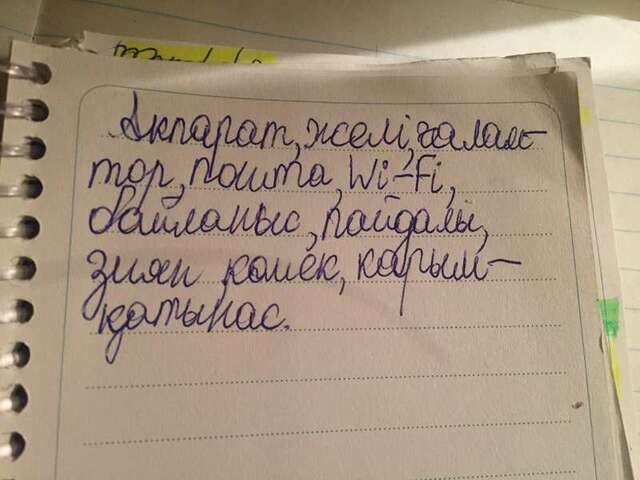 Ақпарат, желі, ғалам-
тор, пошта, Wi-Fi,
байланыс, пайдалы,
зиян көмек, қарым-
қатынас.